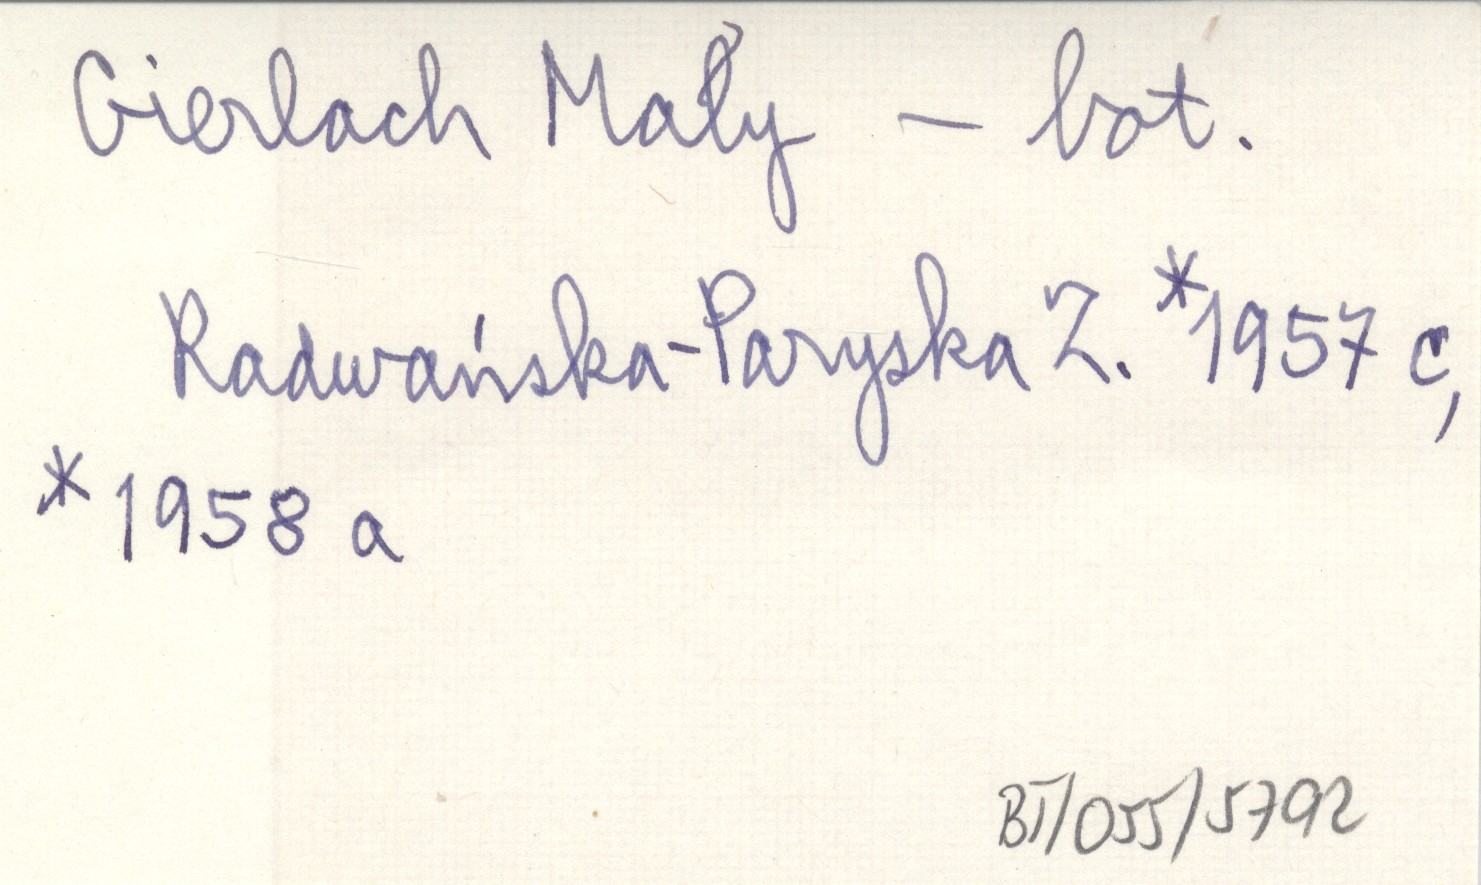 Gierlach Mały – bot.
Radwańska-Paryska Z. *1957 c,
*1958 a
BT/055/5792